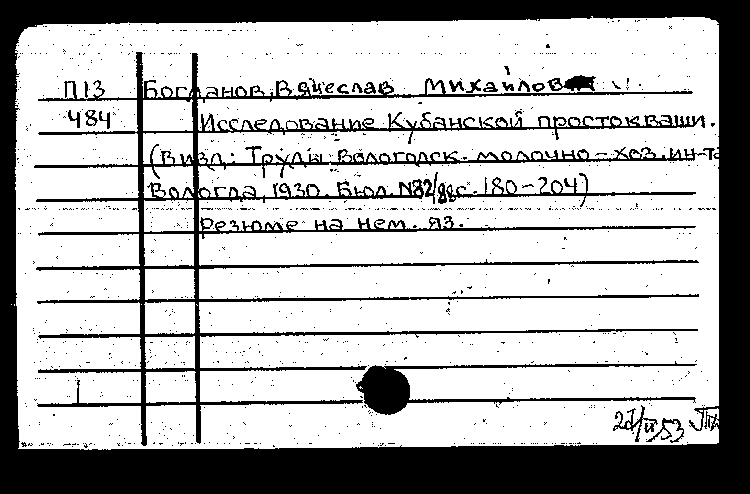 П13 Богданов, Вячеслав Михайлов
484 Исследование Кубанской простокваши.
(В изд: Труды Вологодск. молочно-хоз. ин-та
Вологда, 1930. Бюл. №82/88 с. 180-204)
Резюме на нем. яз.
53